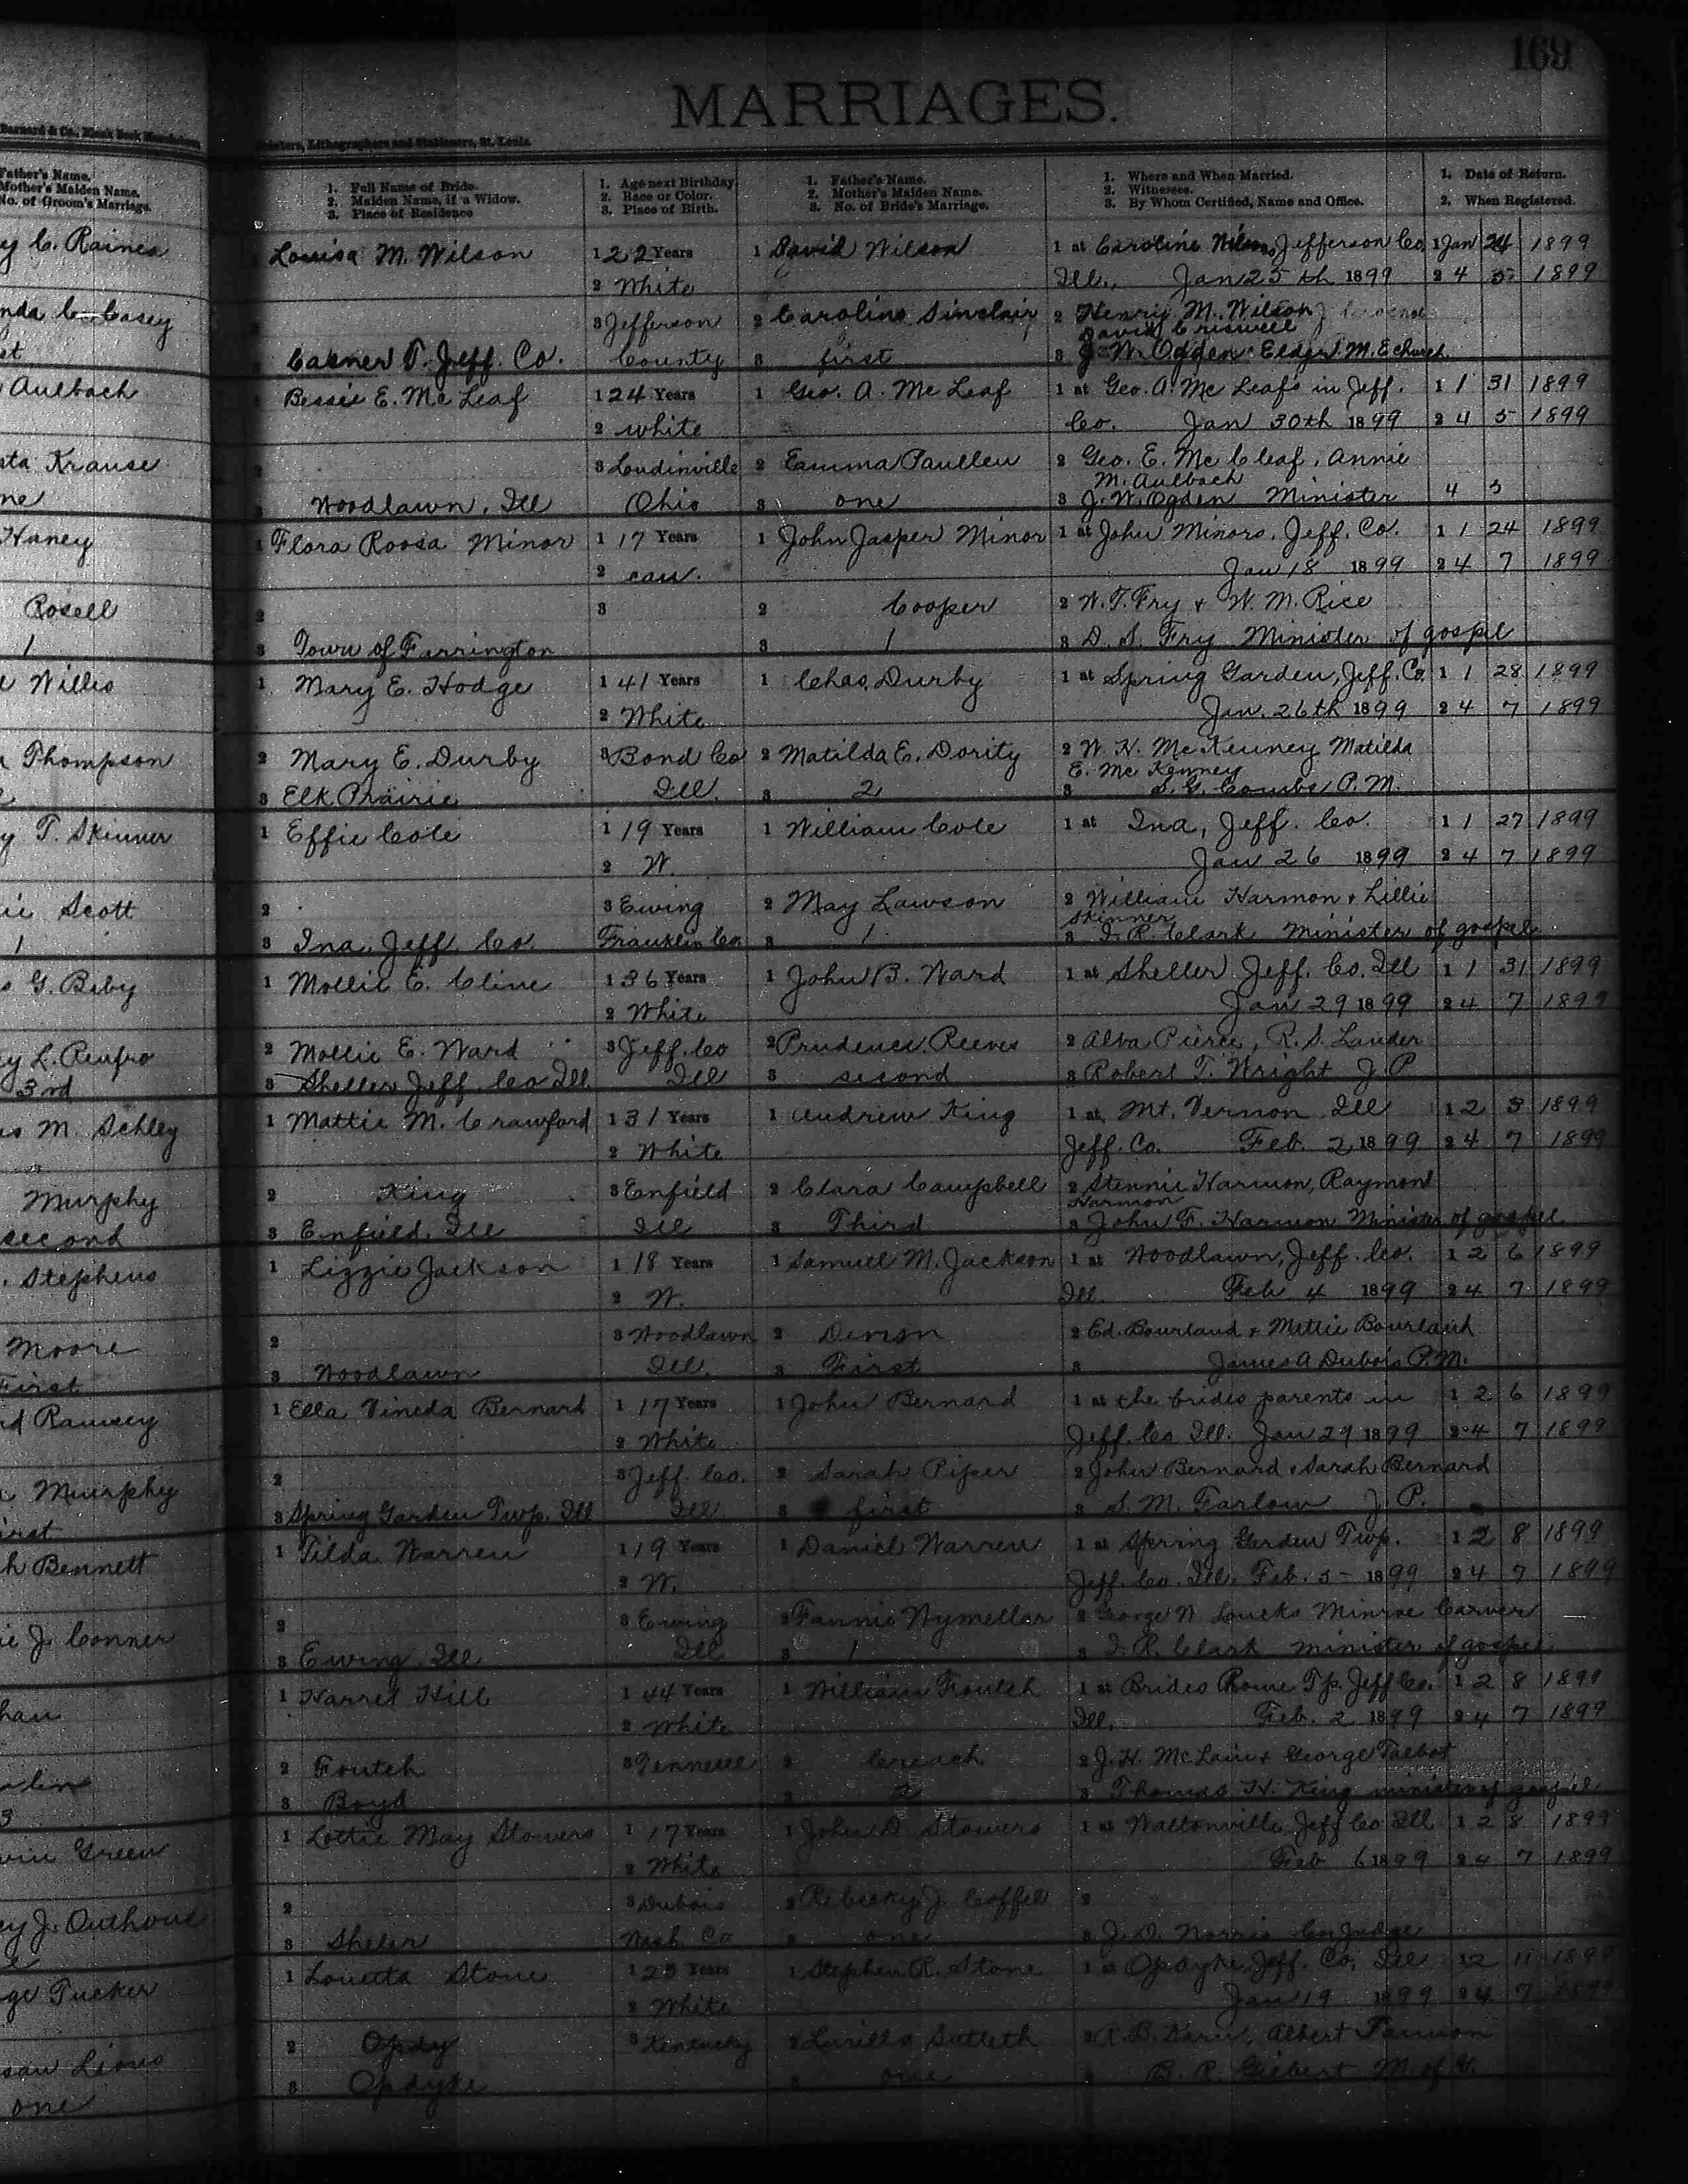 169
MARRIAGES.
Barnard & Co., Blank Book Manufacturers,
Printers, Lithographers and Stationers, St. Louis.
Father's Name.
Mother's Maiden Name.
No. of Groom's Marriage.
1. Full Name of Bride.
2. Maiden Name, if a Widow.
3. Place of Residence
1. Age next Birthday.
2. Race or Color.
3. Place of Birth.
1. Father's Name.
2. Mother's Maiden Name.
3. No. of Bride's Marriage.
1. Where and When Married.
2. Witnesses.
3. By Whom Certified, Name and Office.
1. Date of Return.
2. When Registered.
y C. Raines
Louisa M. Wilson 1 22 Years 1 David Wilson 1 at Caroline Wilson, Jefferson Co, 1 Jan 24 1899
2 White Ill., Jan 25th 1899 2 4 5 1899
nda C. Casey 3 Jefferson 2 Caroline Sinclair 2 Henry M. Wilson
David Criswell
Casner T. Jeff. Co. County 3 first 3 J. W. Ogden Elder M. E church
Aulbach
1 Bessie E. Mc Leaf 1 24 Years 1 Geo. A. Mc Leaf 1 at Geo. A. Mc Leafs in Jeff. 1 1 31 1899
2 white Co. Jan 30th 1899 2 4 5 1899
sta Krause 2 3 Loudinville 2 Emma Paullen 2 Geo. E. Mc Cleaf, Annie
M. Aulbach
ne 3 Woodlawn, Ill Ohio 3 one 3 J. W. Ogden Minister 4 5
Haney 1 Flora Roosa Minor 1 17 Years 1 John Jasper Minor 1 at John Minors, Jeff. Co. 1 1 24 1899
2 cau. Jan 18 1899 2 4 7 1899
Rosell 2 3 2 Cooper 2 W. T. Fry & W. M. Rice
1 3 Town of Farrington 3 1 3 D. S. Fry Minister of gospel
e Willis 1 Mary E. Hodge 1 41 Years 1 Chas. Durby 1 at Spring Garden, Jeff. Co. 1 1 28 1899
2 White Jan. 26th 1899 2 4 7 1899
Thompson 2 Mary E. Durby 3 Bond Co 2 Matilda E. Dority 2 W. H. McKenney Matilda
E. Mc Kenney
3 Elk Prairie Ill. 3 2 3 S. G. Combs P. M.
y T. Skinner 1 Effie Cole 1 19 Years 1 William Cole 1 at Ina, Jeff. Co. 1 1 27 1899
2 W. Jan 26 1899 2 4 7 1899
ie Scott 2 3 Ewing 2 May Lawson 2 William Harmon & Lillie
Skinner
1 3 Ina, Jeff. Co. Franklin Co. 3 1 3 I. R. Clark Minister of gospel
s G. Beby 1 Mollie E. Cline 1 36 Years 1 John B. Ward 1 at Sheller Jeff. Co. Ill 1 1 31 1899
2 White Jan 29 1899 2 4 7 1899
ey L. Renfro 2 Mollie E. Ward 3 Jeff. Co 2 Prudence Reeves 2 Alva Pierce, R. S. Lander
3rd 3 Sheller Jeff. Co Ill. Ill 3 second 3 Robert T. Wright J. P
s M. Schley 1 Mattie M. Crawford 1 31 Years 1 Andrew King 1 at Mt. Vernon Ill 1 2 3 1899
2 White Jeff. Co. Feb. 2 1899 2 4 7 1899
Murphy 2 King 3 Enfield 2 Clara Campbell 2 Stennie Harmon, Raymond
Harmon
second 3 Enfield, Ill Ill 3 Third 3 John F. Harmon Minister of gospel
. Stephens 1 Lizzie Jackson 1 18 Years 1 Samuel M. Jackson 1 at Woodlawn, Jeff. Co. 1 2 6 1899
2 W. Ill. Feb. 4 1899 2 4 7 1899
Moore 2 3 Woodlawn 2 2 Ed. Bourland & Mittie Bourland
First 3 Woodlawn Ill. 3 First 3 James A Dubois P. M.
rd Ramsey 1 Ella Vineda Bernard 1 17 Years 1 John Bernard 1 at the brides parents in 1 2 6 1899
2 White Jeff. Co Ill. Jan 29 1899 2 4 7 1899
Murphy 2 3 Jeff. Co. 2 Sarah Piper 2 John Bernard & Sarah Bernard
irst 3 Spring Garden Twp. Ill Ill 3 first 3 S. M. Farlow J. P.
h Bennett 1 Tilda Warren 1 19 Years 1 Daniel Warren 1 at Spring Garden Twp. 1 2 8 1899
2 W. Jeff. Co. Ill. Feb. 5 - 1899 2 4 7 1899
ie J. Conner 2 3 Ewing 2 Fannie Wymellar 2 George W Loucks Minroe Carver
3 Ewing, Ill Ill 3 1 3 I. R. Clark Minister of gospel
han 1 Harret Hill 1 44 Years 1 William Foutch 1 at Brides Rome Tp. Jeff Co. 1 2 8 1899
2 White Ill. Feb. 2 1899 2 4 7 1899
2 Foutch 3 Tennessee 2 Creach 2 J. H. McLain & George Talbot
3 3 Boyd 3 3 Thomas H. King minister of gospel
vin Green 1 Lottie May Stowers 1 17 Years 1 John D Stowers 1 at Waltonville Jeff Co Ill 1 2 8 1899
2 White Feb 6 1899 2 4 7 1899
cy J. Outhouse 2 3 Dubois 2 Rebecky J. Coffee 2
3 Sheler Wash. Co 3 one 3 J. D. Norris Co. Judge
ge Tucker 1 Louetta Stone 1 23 Years 1 Stephen R. Stone 1 at Opdyke, Jeff. Co, Ill 1 2 11 1899
2 White Jan 19 1899 2 4 7 1899
san Lions 2 Opdy 3 Kentucky 2 Lurilla 2 R. B. Karn, Albert Fannon
one 3 Opdyke 3 one B. R. Giebert M. of G.